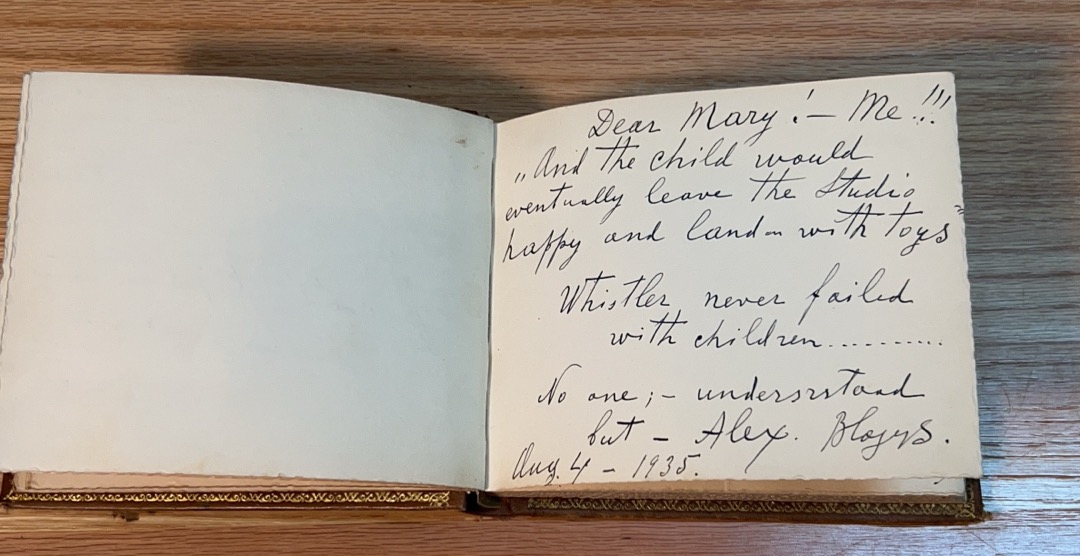 Dear Mary! – Me!!!
„And the child would
eventually leave the Studio
happy and laden with toys"
Whistler never failed
with children..........
No one; – understood
but – Alex.
Aug. 4 – 1935.